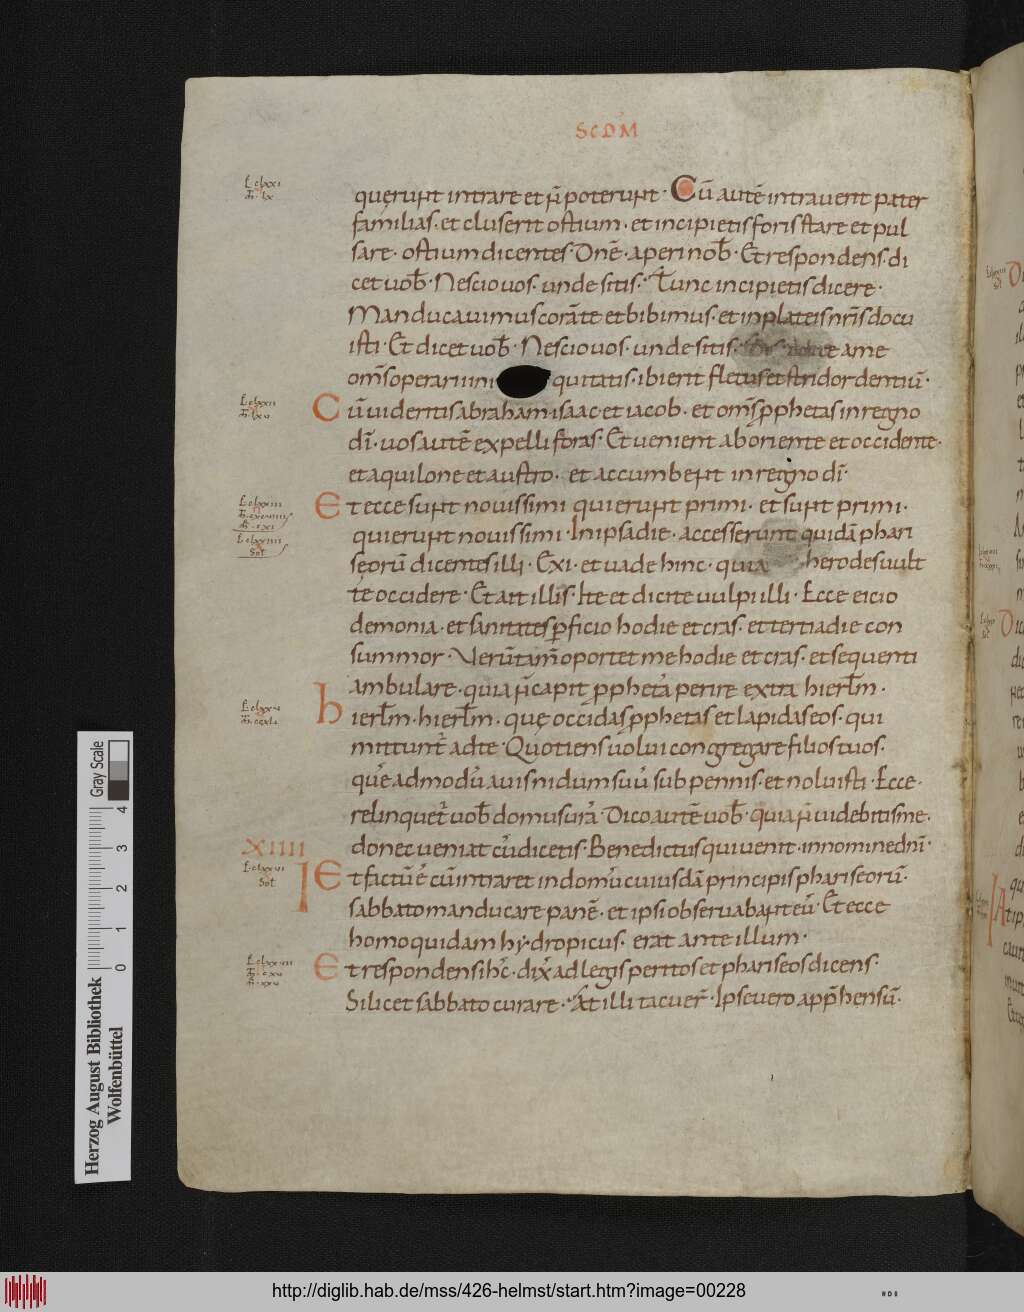 SCDM
querunt intrare et n̄ poterunt · Cū autē intraverit pater
familias · et cluserit ostium · et incipietis foris stare et pul
sare · ostium dicentes · Dnē · aperi nob̄ · Et respondens · di
cet uob̄ · Nescio uos · unde sitis · Tunc incipietis dicere ·
Manducauimus corā te et bibimus · et in plateis nr̄is docu
isti · Et dicet uob̄ · Nescio uos · unde sitis · a me
om̄s operarii ini quitatis · ibi erit fletus et stridor dentiū ·
Cū uideritis abraham isaac et iacob · et om̄s pphetas in regno
dī · uos autē expelli foras · Et uenient ab oriente et occidente ·
et aquilone et austro · et accumbent in regno dī ·
Et ecce sunt nouissimi qui erunt primi · et sunt primi ·
qui erunt nouissimi · In ipsa die · accesserunt quidā phari
seorū dicentes illi · Exi · et uade hinc · quia herodes uult
te occidere · Et ait illis · Ite et dicite uulpi illi · Ecce eicio
demonia · et sanitates pficio hodie et cras · et tertia die con
summor · Verūtam̄ oportet me hodie et cras · et sequenti
ambulare · quia n̄ capit pphetā perire extra hierl̄m ·
hierl̄m · hierl̄m · quę occidas pphetas et lapidas eos · qui
mittunt̄ ad te · Quotiens uolui congregare filios tuos ·
quē admodū auis nidum suū sub pennis · et noluisti · Ecce ·
relinquet̄ uob̄ domus urā · Dico autē uob̄ · quia n̄ uidebitis me ·
donec ueniat cū dicetis · Benedictus qui uenit · in nomine dnī ·
XIIII
Et factū ē cū intraret in domū cuiusdā principis phariseorū ·
sabbato manducare panē · et ipsi obseruabant eū · Et ecce
homo quidam hydropicus · erat ante illum ·
Et respondens ih̄c · dix̄ ad legis peritos et phariseos dicens ·
Si licet sabbato curare · At illi tacuer̄ · Ipse uero app̄hensū ·
Gray Scale
0 1 2 3 4
Herzog August Bibliothek
Wolfenbüttel
http://diglib.hab.de/mss/426-helmst/start.htm?image=00228